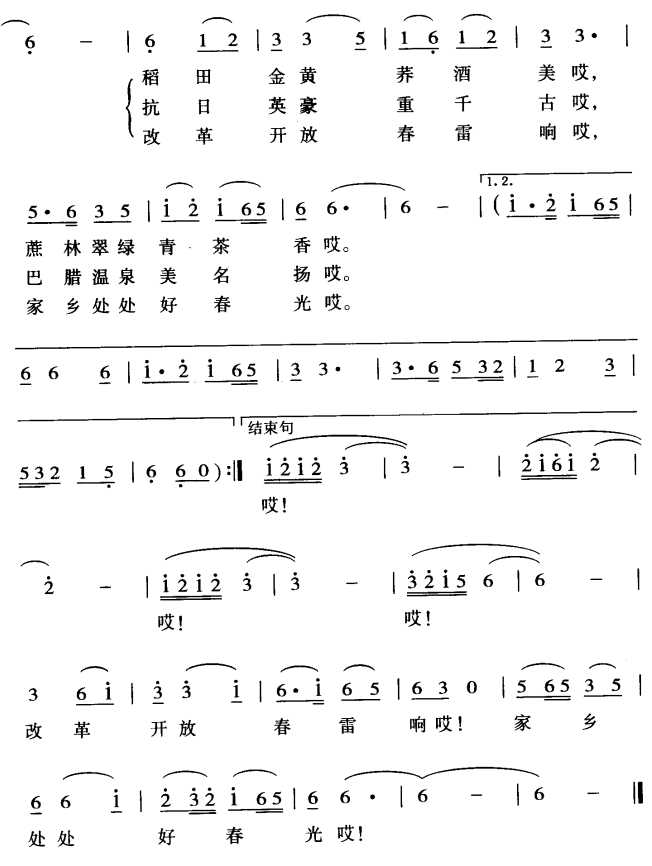 6 - | 6 1 2 | 3 3 5 | 1 6 1 2 | 3 3· |
稻田 金黄 荞酒 美哎,
抗日 英豪 重千 古哎,
改革 开放 春雷 响哎,
5·6 3 5 | i 2 i 65 | 6 6· | 6 - | (i·2 i 65 |
1.2.
蔗林翠绿青茶 香哎。
巴腊温泉美名 扬哎。
家乡处处好春 光哎。
6 6 6 | i·2 i 65 | 3 3· | 3·6 5 32 | 1 2 3 |
结束句
532 1 5 | 6 6 0) :‖ i2i2 3 | 3 - | 2i6i 2 |
哎!
2 - | i2i2 3 | 3 - | 32i5 6 | 6 - |
哎! 哎!
3 6 i | 3 3 i | 6·i 6 5 | 6 3 0 | 5 65 3 5 |
改革 开放 春雷 响哎! 家乡
6 6 i | 2 32 i 65 | 6 6· | 6 - | 6 - ‖
处处 好春 光哎!